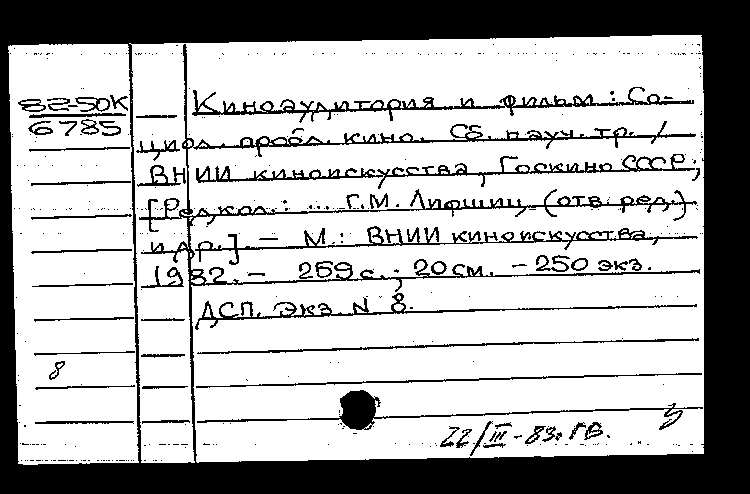 82-50К
6785
Киноаудитория и фильм : Со-
циол. пробл. кино. Сб. науч. тр. /
ВНИИ киноискусства, Госкино СССР;
[Редкол.: ... Г.М. Лифшиц (отв. ред.)
и др.]. - М.: ВНИИ киноискусства,
1982. - 259 с.; 20 см. - 250 экз.
ДСП. Экз. N 8.
8
22/III-83. ГВ.